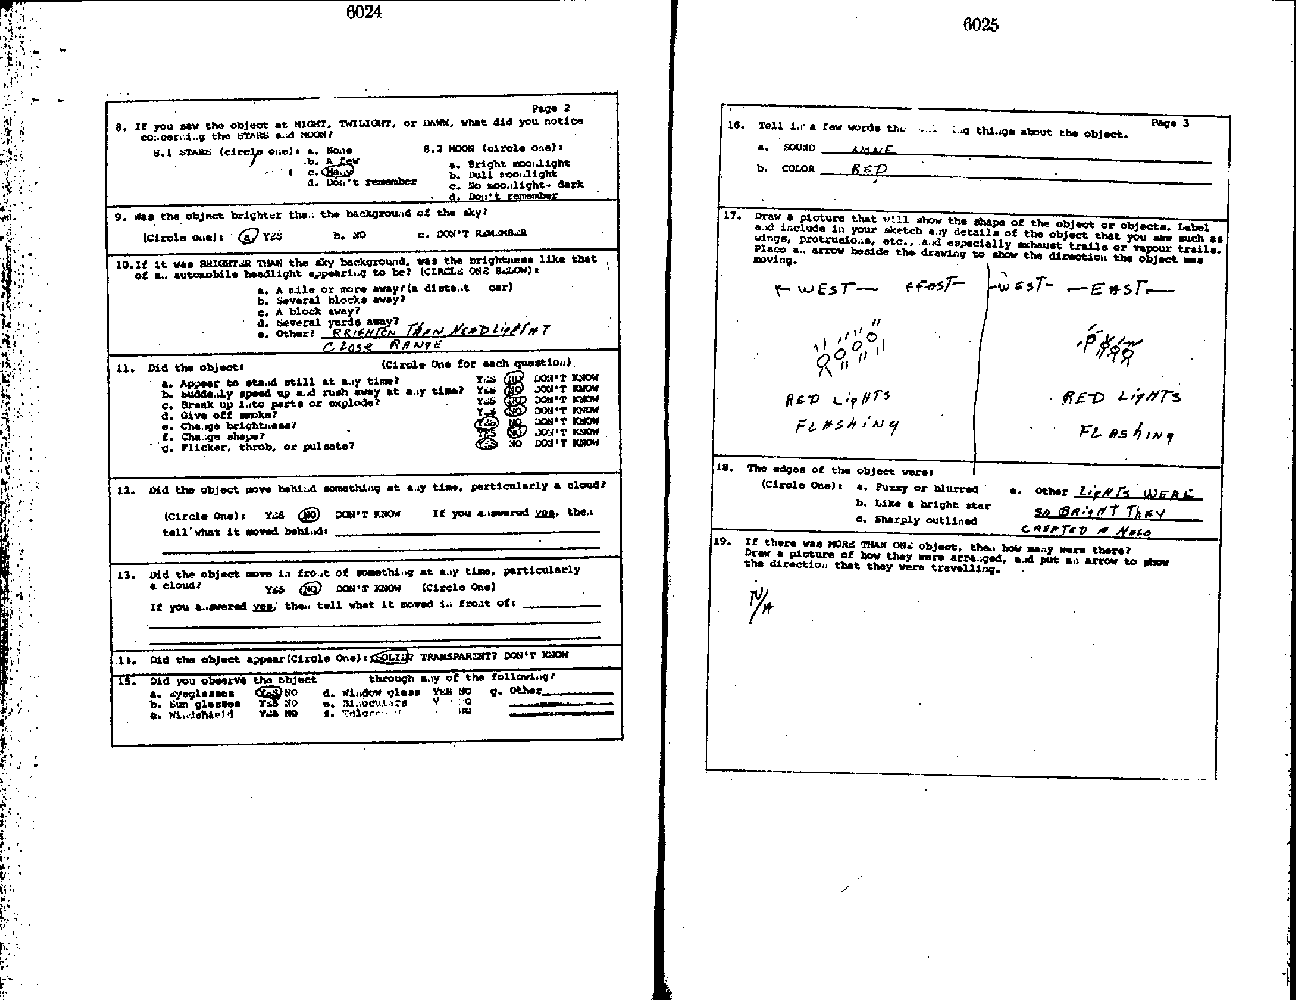 6024
Page 2
8. If you saw the object at NIGHT, TWILIGHT, or DAWN, what did you notice
concerning the STARS and MOON?
8.1 STARS (circle one): a. None
b. A few
c. Many
d. Don't remember
8.2 MOON (circle one):
a. Bright moonlight
b. Dull moonlight
c. No moonlight- dark
d. Don't remember
9. Was the object brighter than the background of the sky?
(Circle One): a. YES b. NO c. DON'T REMEMBER
10. If it was BRIGHTER THAN the sky background, was the brightness like that
of an automobile headlight appearing to be? (CIRCLE ONE BELOW):
a. A mile or more away?(a distant car)
b. Several blocks away?
c. A block away?
d. Several yards away?
e. Other? BRIGHTER THAN HEADLIGHT AT
CLOSE RANGE
11. Did the object: (Circle One for each question)
a. Appear to stand still at any time? YES NO DON'T KNOW
b. Suddenly speed up and rush away at any time? YES NO DON'T KNOW
c. Break up into parts or explode? YES NO DON'T KNOW
d. Give off smoke? YES NO DON'T KNOW
e. Change brightness? YES NO DON'T KNOW
f. Change shape? YES NO DON'T KNOW
g. Flicker, throb, or pulsate? YES NO DON'T KNOW
12. Did the object move behind something at any time, particularly a cloud?
(Circle One): YES NO DON'T KNOW If you answered yes, then
tell what it moved behind:
13. Did the object move in front of something at any time, particularly
a cloud? YES NO DON'T KNOW (Circle One)
If you answered yes, then tell what it moved in front of:
14. Did the object appear(Circle One): SOLID? TRANSPARENT? DON'T KNOW
15. Did you observe the object through any of the following?
a. Eyeglasses YES NO d. Window glass YES NO g. Other
b. Sun glasses YES NO e. Binoculars
c. Windshield YES NO f. NO
6025
Page 3
16. Tell in a few words the things about the object.
a. SOUND
b. COLOR RED
17. Draw a picture that will show the shape of the object or objects. Label
and include in your sketch any details of the object that you saw such as
wings, protrusions, etc., and especially exhaust trails or vapour trails.
Place an arrow beside the drawing to show the direction the object was
moving.
WEST EAST WEST EAST
RED LIGHTS
FLASHING
RED LIGHTS
FLASHING
18. The edges of the object were:
(Circle One): a. Fuzzy or blurred
b. Like a bright star
c. Sharply outlined
e. Other LIGHTS WERE
SO BRIGHT THEY
CREATED A HALO
19. If there was MORE THAN ONE object, then how many were there?
Draw a picture of how they were arranged, and put an arrow to show
the direction that they were travelling.
N/A